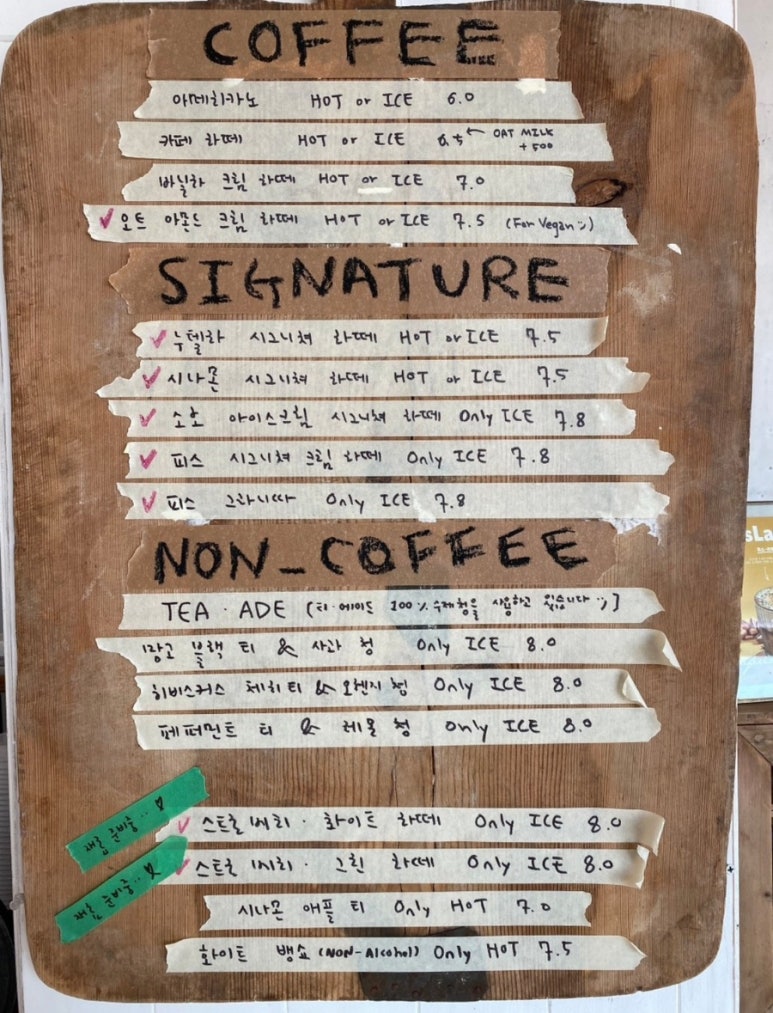 COFFEE
아메리카노 HOT or ICE 6.0
카페 라떼 HOT or ICE 6.5 ← OAT MILK +500
바닐라 크림 라떼 HOT or ICE 7.0
✓ 오트 아몬드 크림 라떼 HOT or ICE 7.5 (For Vegan :))
SIGNATURE
✓ 누텔라 시그니쳐 라떼 HOT or ICE 7.5
✓ 시나몬 시그니쳐 라떼 HOT or ICE 7.5
✓ 소호 아이스크림 시그니쳐 라떼 Only ICE 7.8
✓ 피스 시그니쳐 크림 라떼 Only ICE 7.8
✓ 피스 그라니따 Only ICE 7.8
NON_COFFEE
TEA · ADE [티·에이드 100% 수제청을 사용하고 있습니다 :)]
망고 블랙 티 & 사과 청 Only ICE 8.0
히비스커스 체리 티 & 오렌지 청 Only ICE 8.0
페퍼민트 티 & 레몬 청 Only ICE 8.0
재료 준비중.. ♡
✓ 스트로베리 · 화이트 라떼 Only ICE 8.0
재료 준비중.. ♡
✓ 스트로베리 · 그린 라떼 Only ICE 8.0
시나몬 애플 티 Only HOT 7.0
화이트 뱅쇼 (NON-Alcohol) Only HOT 7.5